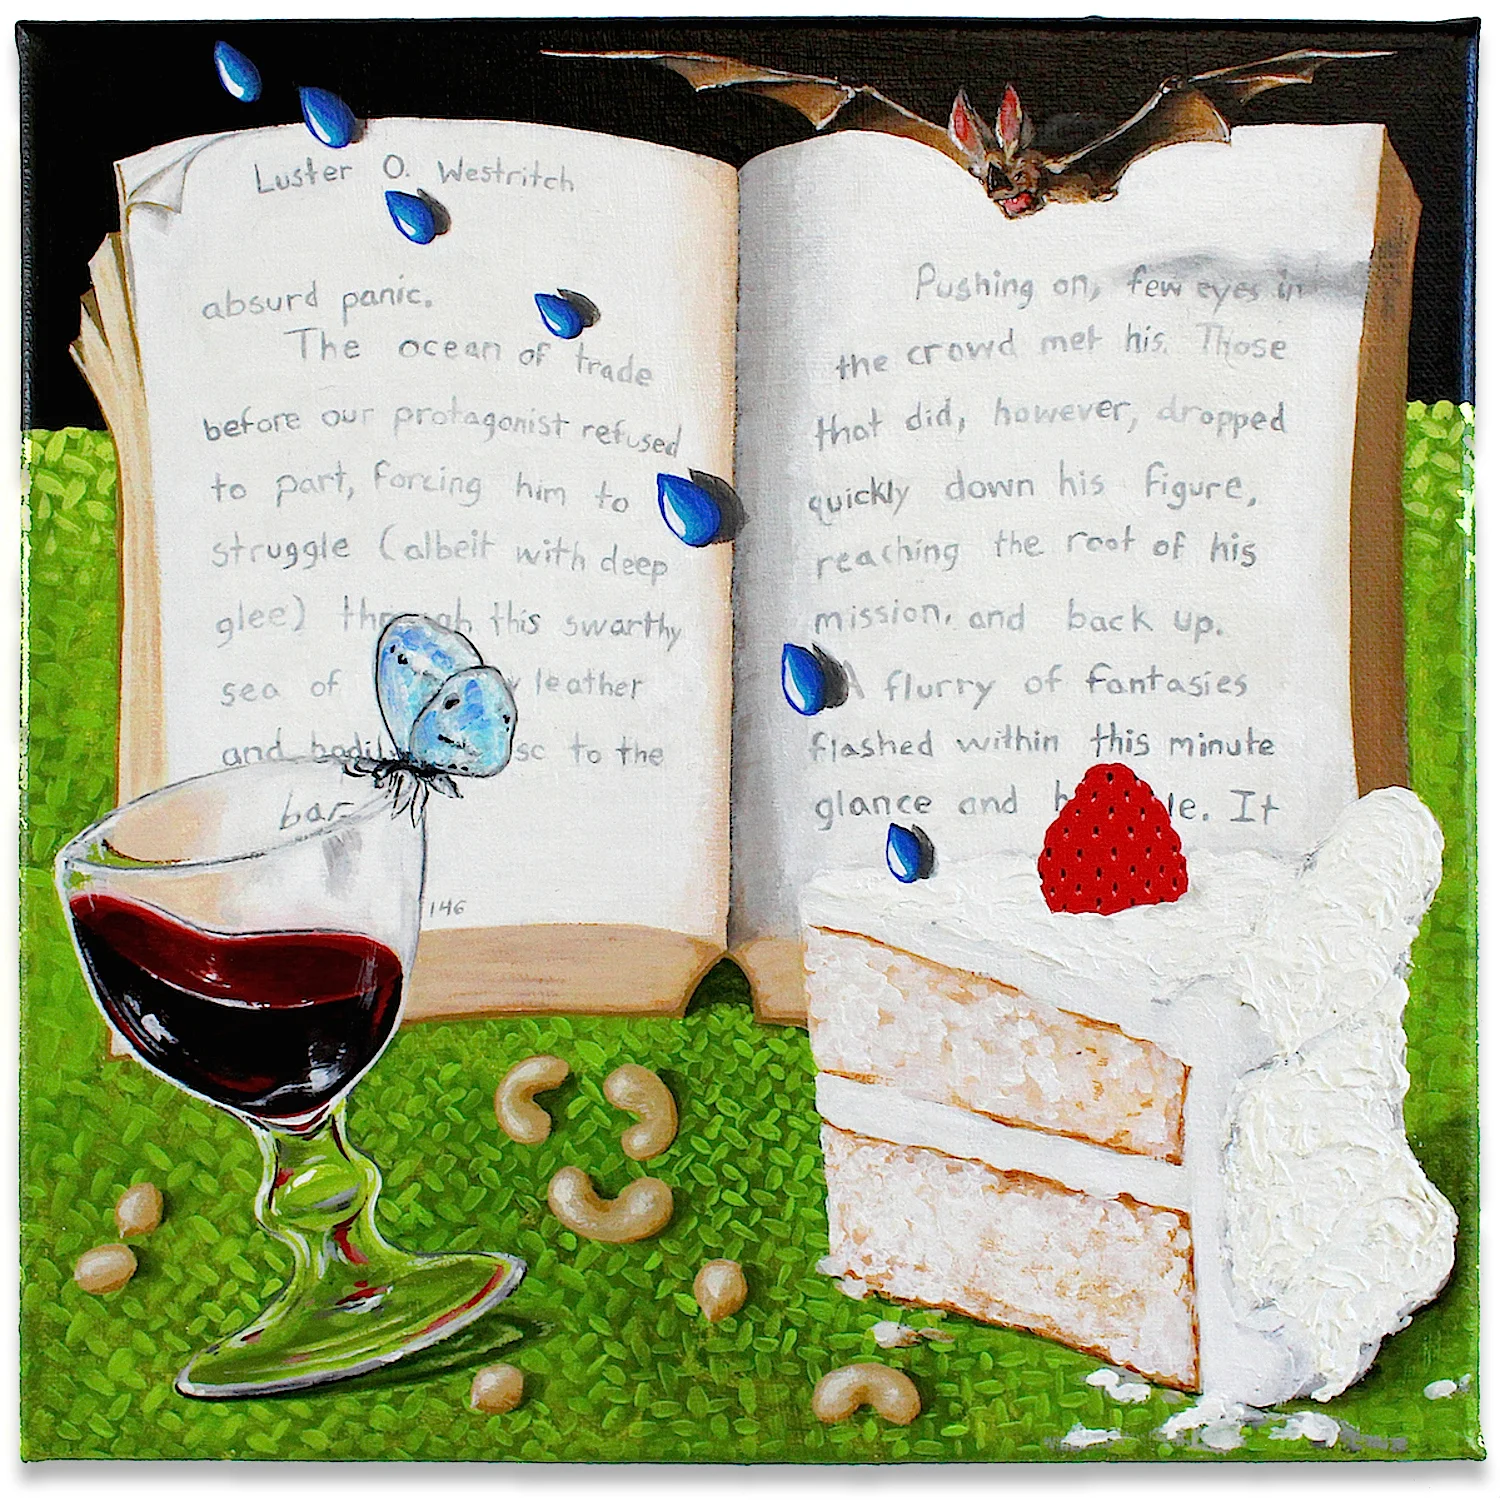 Luster O. Westritch
absurd panic.
The ocean of trade
before our protagonist refused
to part, forcing him to
struggle (albeit with deep
glee) through this swarthy
sea of leather
and to the
bar
146
Pushing on, few eyes in
the crowd met his. Those
that did, however, dropped
quickly down his figure,
reaching the root of his
mission, and back up.
A flurry of fantasies
flashed within this minute
glance and It